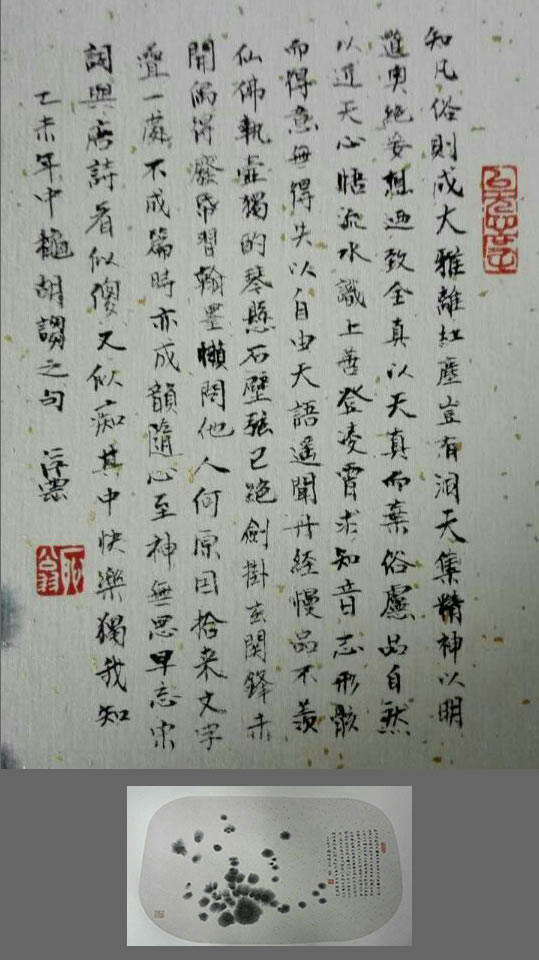 知凡俗則成大雅離紅塵豈有洞天集精神以明
進奧絶妄想迺致全真以天真而棄俗慮品自然
以近天心悟流水識上善登凌霄求知音忘形骸
而得意無得失以自由天語遥聞丹經慢品不羨
仙佛執壺獨的琴懸石壁弦已絶劍掛玄関鋒未
開偶得廢帋習翰墨懶問他人何原因拾来文字
疊一處不成篇時亦成韻隨心至神無思早忘宋
詞與唐詩看似傻又似痴其中快樂獨我知
乙未年中龝胡謅之句